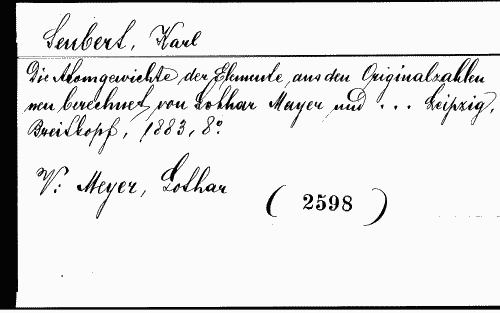 Seubert, Karl
Die Atomgewichte der Elemente, aus den Originalzahlen
neu berechnet von Lothar Meyer und ... Leipzig,
Breitkopf, 1883, 8º
V: Meyer, Lothar
( 2598 )